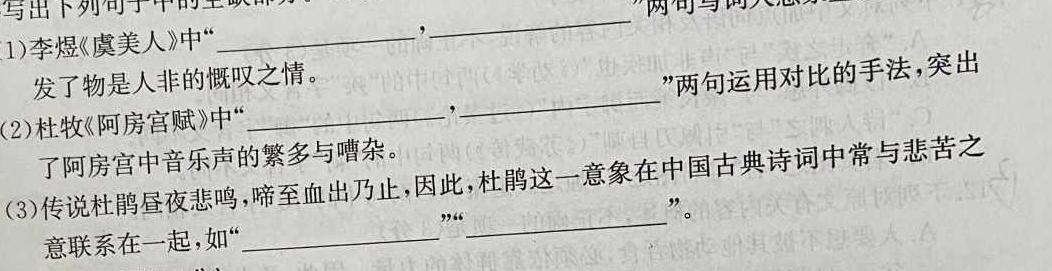 写出下列句子中的空缺部分
(1)李煜《虞美人》中“____________,____________”两句写词人
发了物是人非的慨叹之情。
(2)杜牧《阿房宫赋》中“____________,____________”两句运用对比的手法,突出
了阿房宫中音乐声的繁多与嘈杂。
(3)传说杜鹃昼夜悲鸣,啼至血出乃止,因此,杜鹃这一意象在中国古典诗词中常与悲苦之
意联系在一起,如“____________”“____________”。